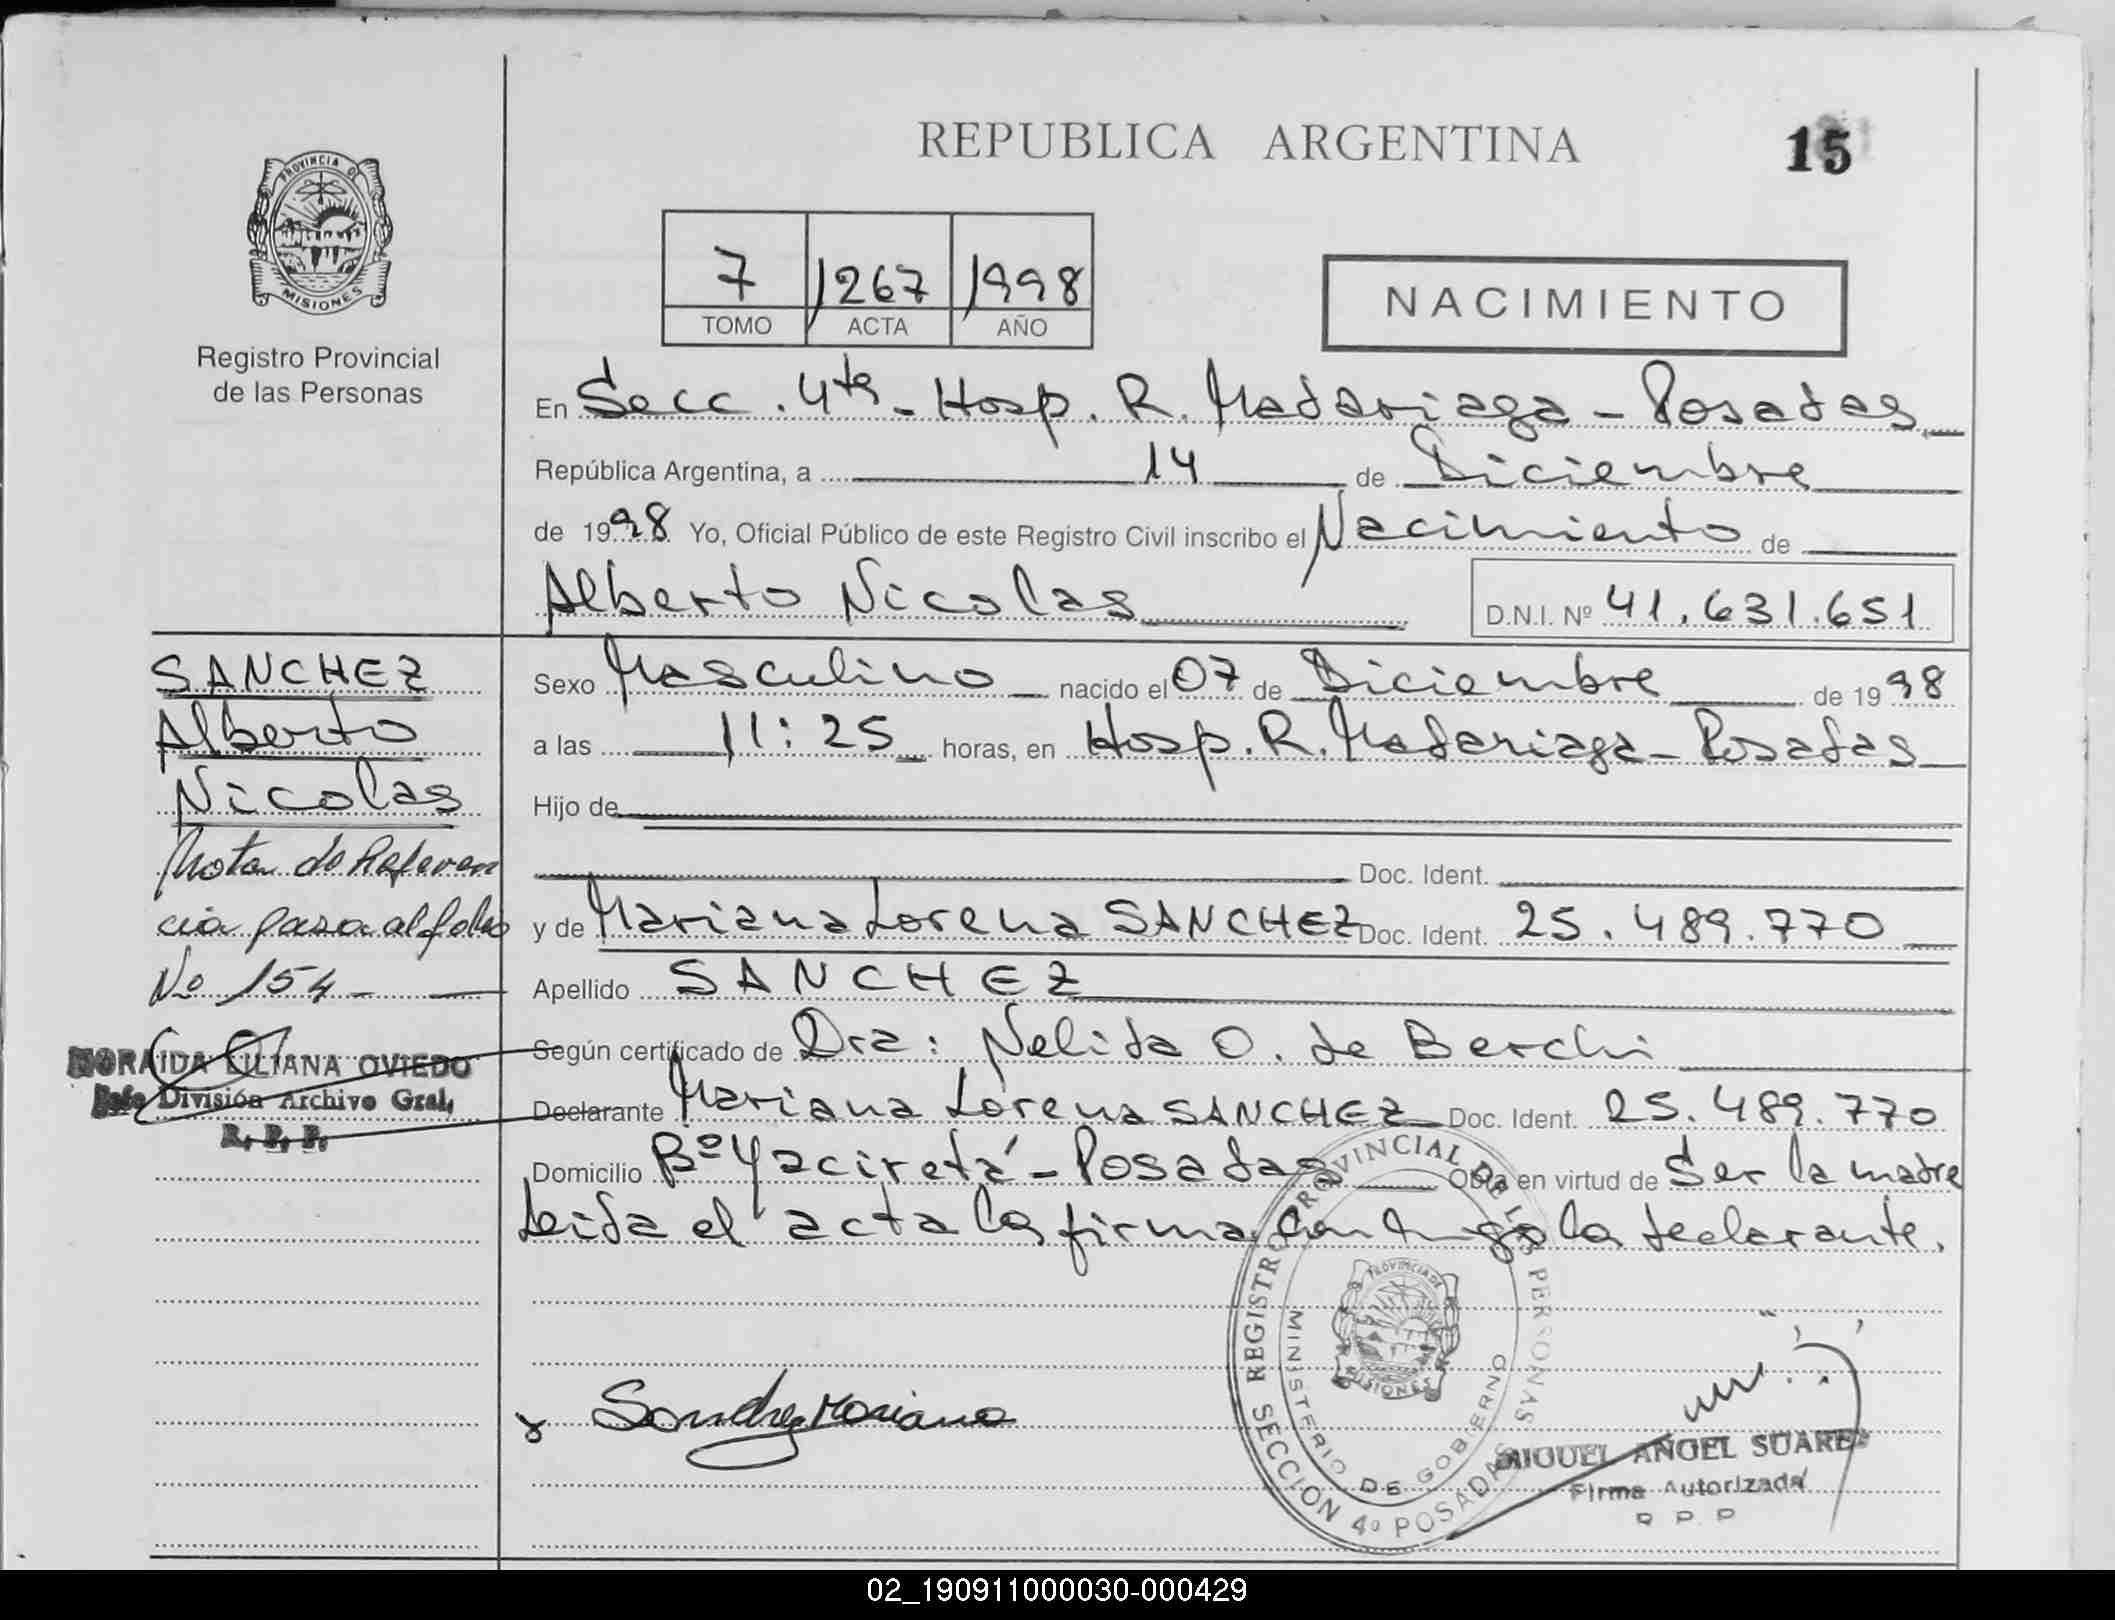 REPUBLICA ARGENTINA
15
PROVINCIA DE
MISIONES
Registro Provincial
de las Personas
7 1267 1998
TOMO ACTA AÑO
NACIMIENTO
En Secc. 4ta - Hosp. R. Madariaga - Posadas
República Argentina, a 14 de Diciembre
de 1998 Yo, Oficial Público de este Registro Civil inscribo el Nacimiento de
Alberto Nicolas D.N.I. Nº 41.631.651
SANCHEZ
Alberto
Nicolas
Nota de Referen
cia pasa al folio
Nº 154
NORAIDA LILIANA OVIEDO
Jefe División Archivo Gral,
R. P. P.
Sexo Masculino nacido el 07 de Diciembre de 1998
a las 11:25 horas, en Hosp. R. Madariaga - Posadas
Hijo de
Doc. Ident.
y de Mariana Lorena SANCHEZ Doc. Ident. 25.489.770
Apellido SANCHEZ
Según certificado de Dra: Nelida O. de Berchi
Declarante Mariana Lorena SANCHEZ Doc. Ident. 25.489.770
Domicilio Bº Yacireta - Posadas Obra en virtud de Ser la madre
Leida el acta la firma conmigo la declarante.
REGISTRO PROVINCIAL DE LAS PERSONAS
SECCIÓN 4º POSADAS
MINISTERIO DE GOBIERNO
PROVINCIA DE
MISIONES
Sanchez Mariana
MIGUEL ANGEL SUAREZ
Firma Autorizada
R P P
02_190911000030-000429